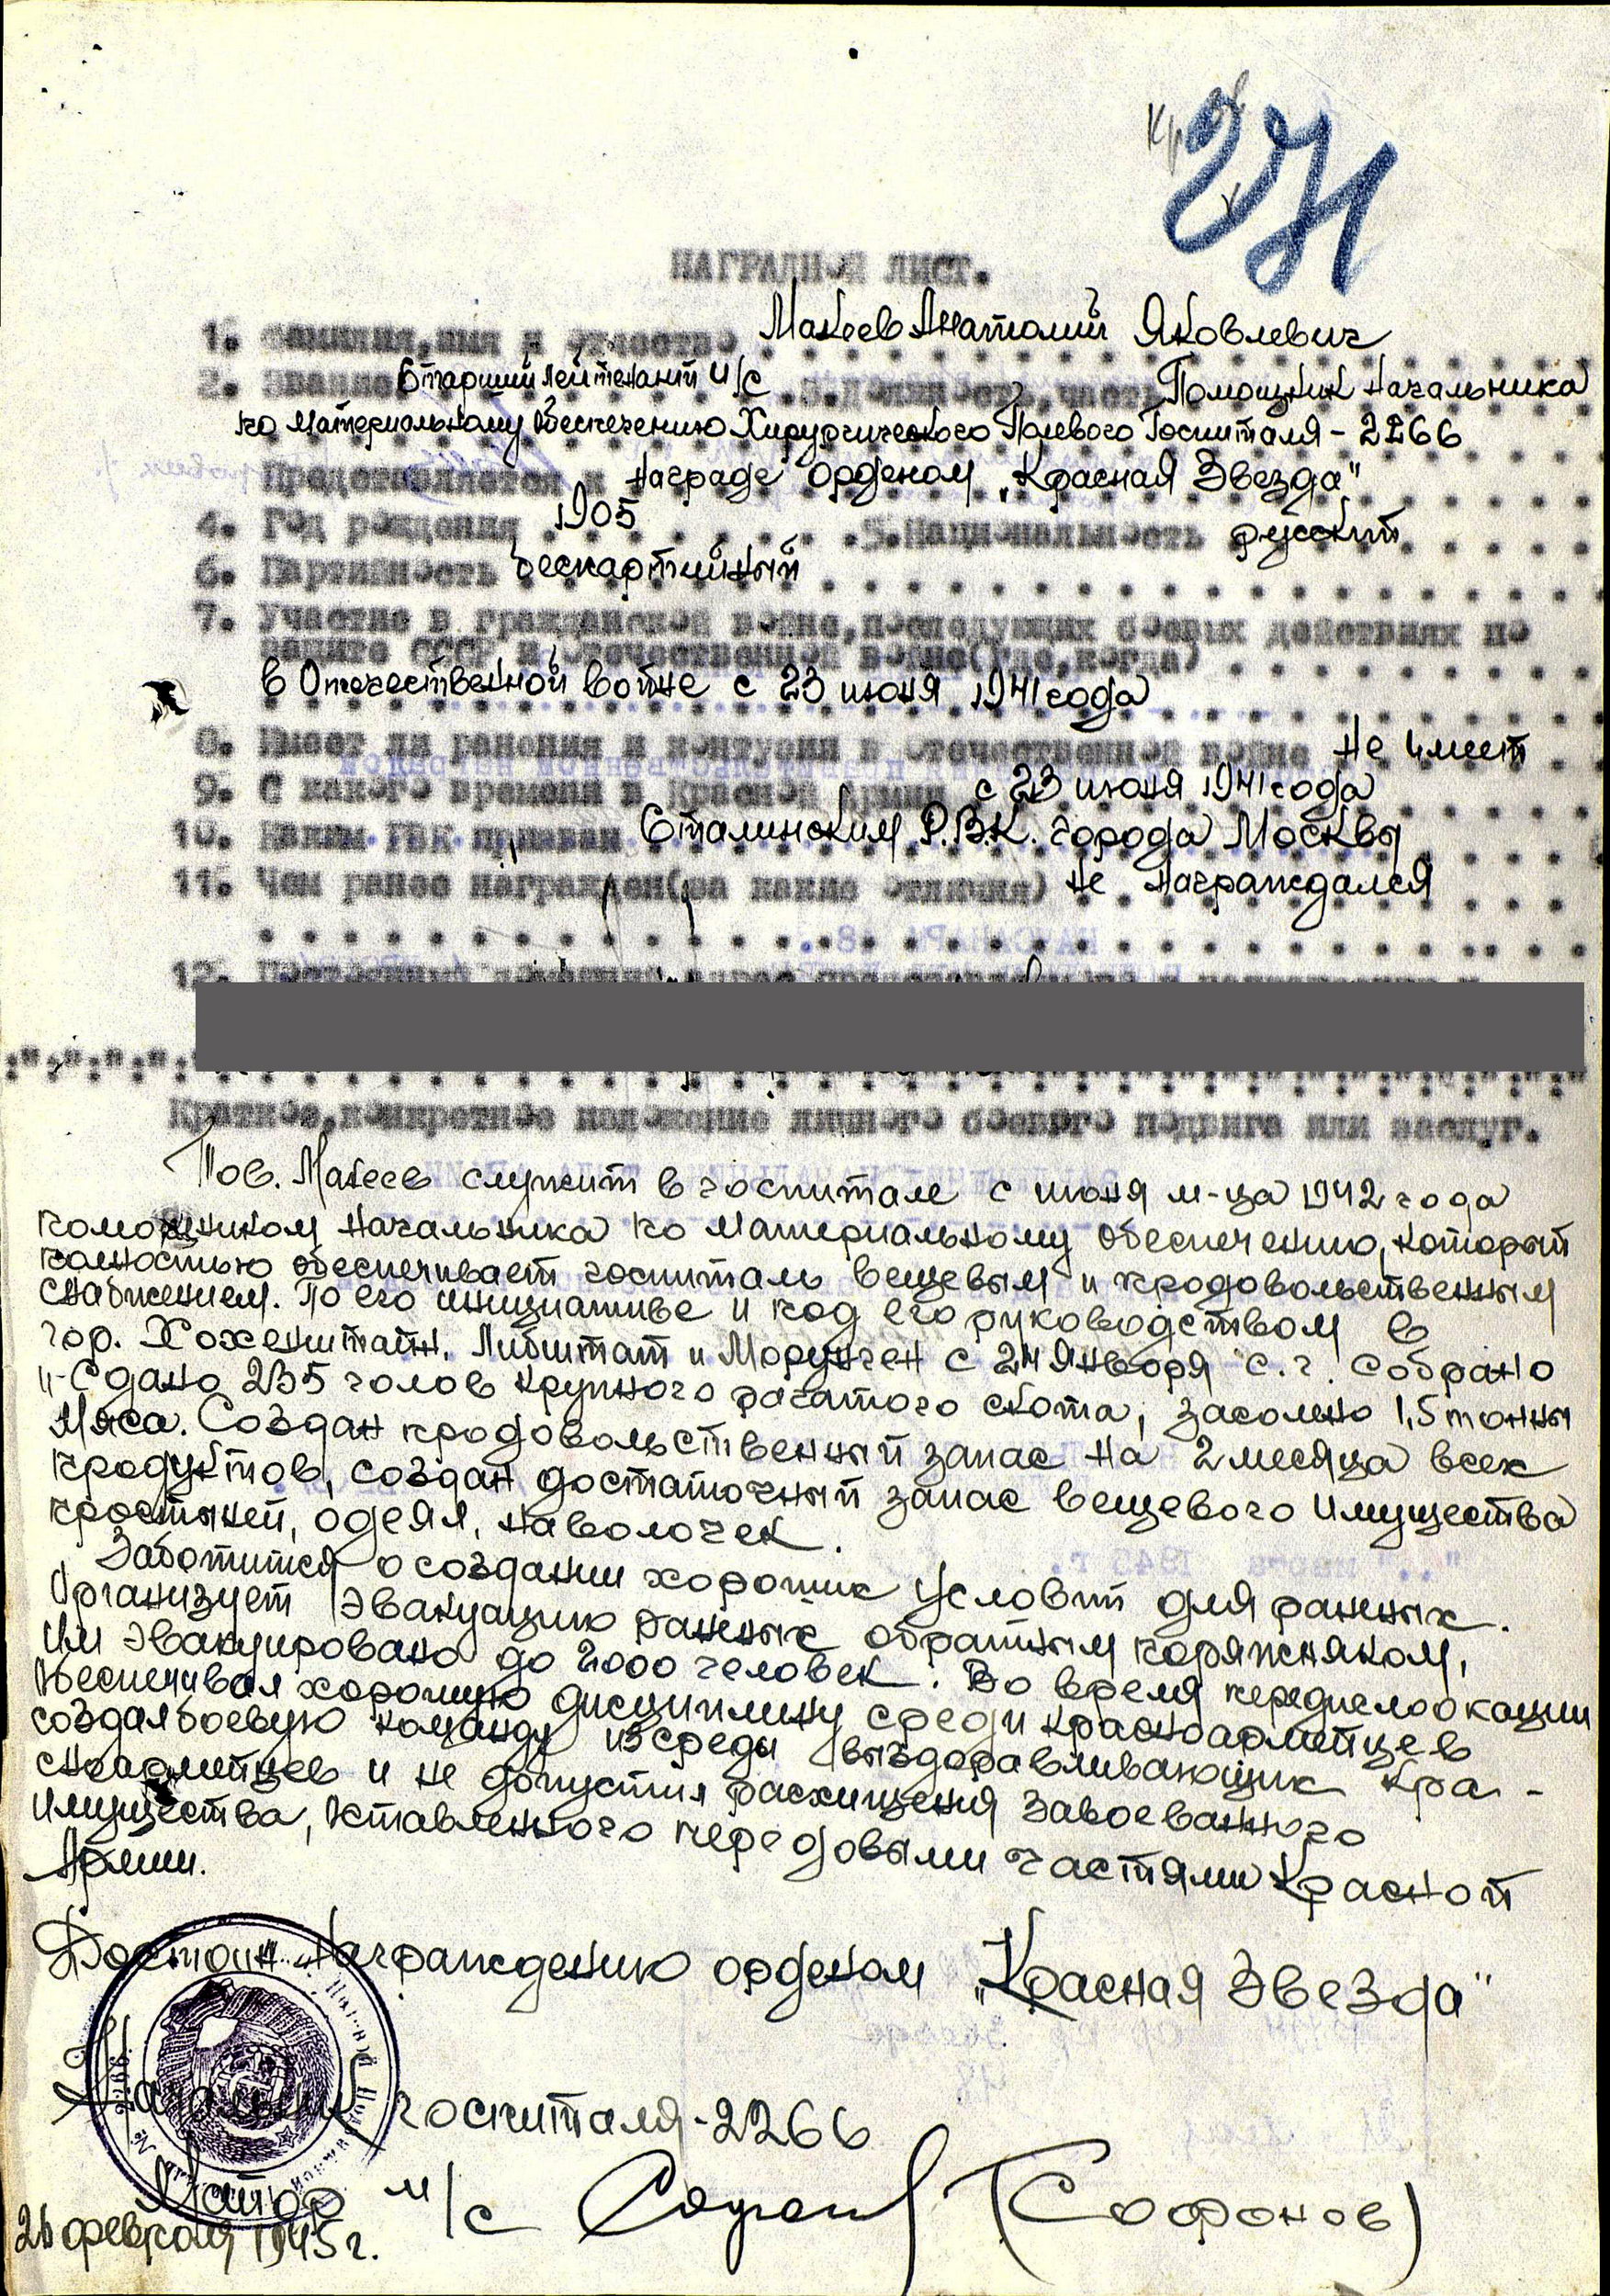 274
НАГРАДНОЙ ЛИСТ.
1. Фамилия, имя и отчество Макеев Анатолий Яковлевич
2. Звание Старший лейтенант и/с 3. Должность, часть Помощник начальника
по материальному обеспечению Хирургического Полевого Госпиталя - 2266
Представляется к награде орденом „Красная Звезда"
4. Год рождения 1905 5. Национальность русский
6. Партийность беспартийный
7. Участие в гражданской войне, последующих боевых действиях по
защите СССР и отечественной войне (где, когда)
в Отечественной войне с 23 июня 1941 года
8. Имеет ли ранения и контузии в отечественной войне не имеет
9. С какого времени в Красной армии с 23 июня 1941 года
10. Каким РВК призван Сталинским Р.В.К. города Москвы
11. Чем ранее награжден (за какие отличия) не награждался
12.
Краткое, конкретное изложение личного боевого подвига или заслуг.
Тов. Макеев служит в госпитале с июня м-ца 1942 года
помощником начальника по материальному обеспечению, который
полностью обеспечивает госпиталь вещевым и продовольственным
снабжением. По его инициативе и под его руководством в
гор. Хохенштайн, Либштат и Морунген с 24 января с.г. собрано
и сдано 235 голов крупного рогатого скота, засолено 1,5 тонны
мяса. Создан продовольственный запас на 2 месяца всех
продуктов, создан достаточный запас вещевого имущества
простыней, одеял, наволочек.
Заботится о создании хороших условий для раненых.
Организует эвакуацию раненых обратным порожняком,
им эвакуировано до 2000 человек. Во время передислокации
обеспечивал хорошую дисциплину среди красноармейцев
создал боевую команду из среды выздоравливающих кра-
сноармейцев и не допустил расхищения завоеванного
имущества, оставленного передовыми частями Красной
Армии.
Достоин награждению орденом „Красная Звезда"
Начальник госпиталя - 2266
Майор м/с (Софонов)
26 февраля 1945 г.